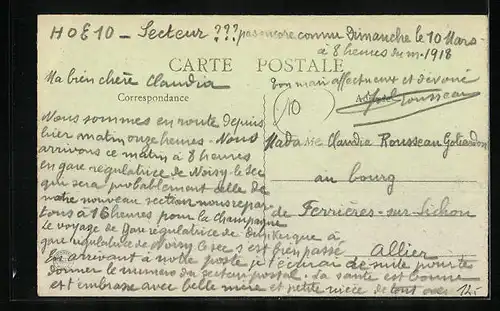 HOE 10 – Secteur ??? pas encore connu Dimanche le 10 Mars
à 8 heures du m. 1918
CARTE POSTALE
Ma bien chère Claudia
ton mari affectueux et dévoué
Correspondance
Rousseau
10
Nous sommes en route depuis
hier matin onze heures. Nous
arrivons ce matin à 8 heures
en gare régulatrice de Noisy-le-Sec
qui sera probablement celle de
notre nouveau section nous repar-
tons à 16 heures pour la champagne
le voyage de gare régulatrice de Dunkerque à
gare régulatrice de Noisy le sec s'est bien passé
En arrivant à notre poste je t'écrirai de suite pour te
donner le numéro du secteur postal. La santé est bonne
est embrasse avec belle mère et petite nièce de tout
Madame Claudia Rousseau
au bourg
de Ferrières-sur-Sichon
Allier
12-